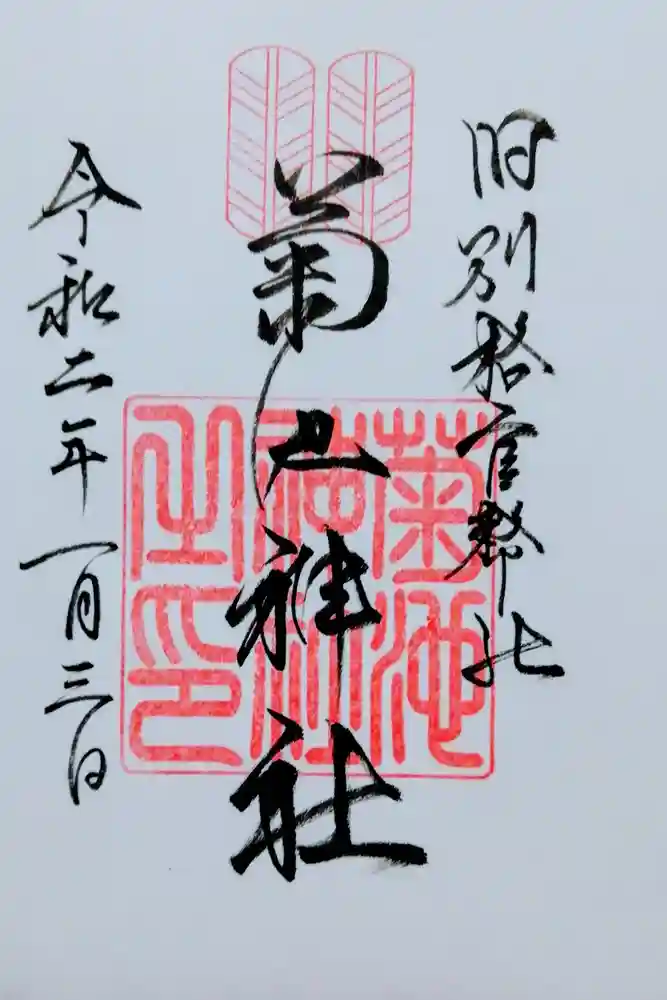 旧別格官幣社
菊池神社
菊池
神社
之印
令和二年一月三日